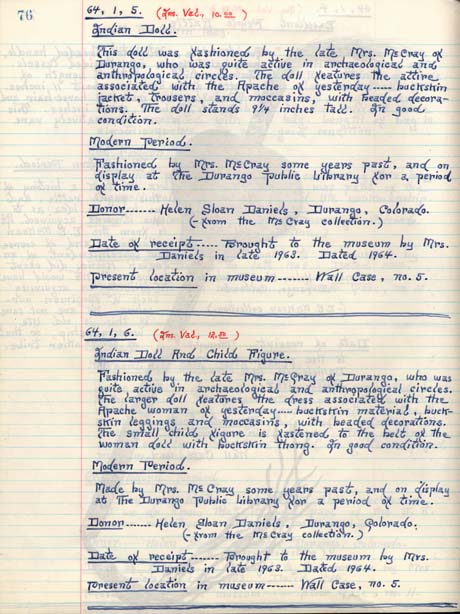 76
64, 1, 5. (Im. Val., 10.00)
Indian Doll.
This doll was fashioned by the late Mrs. McCray of
Durango, who was quite active in archaeological and
anthropological circles. The doll features the attire
associated with the Apache of yesterday---- buckskin
jacket, trousers, and moccasins, with beaded decora-
tions. The doll stands 9¼ inches tall. In good
condition.
Modern Period.
Fashioned by Mrs. McCray some years past, and on
display at The Durango Public Library for a period
of time.
Donor------ Helen Sloan Daniels, Durango, Colorado.
(-from the McCray collection.)
Date of receipt----- Brought to the museum by Mrs.
Daniels in late 1963. Dated 1964.
Present location in museum------- Wall Case, no. 5.
64, 1, 6. (Im. Val., 12.00)
Indian Doll And Child Figure.
Fashioned by the late Mrs. McCray of Durango, who was
quite active in archaeological and anthropological circles.
The larger doll features the dress associated with the
Apache woman of yesterday---- buckskin material, buck-
skin leggings and moccasins, with beaded decorations.
The small child figure is fastened to the belt of the
woman doll with buckskin thong. In good condition.
Modern Period.
Made by Mrs. McCray some years past, and on display
at The Durango Public Library for a period of time.
Donor------ Helen Sloan Daniels, Durango, Colorado.
(-from the McCray collection.)
Date of receipt------ Brought to the museum by Mrs.
Daniels in late 1963. Dated 1964.
Present location in museum------ Wall Case, no. 5.